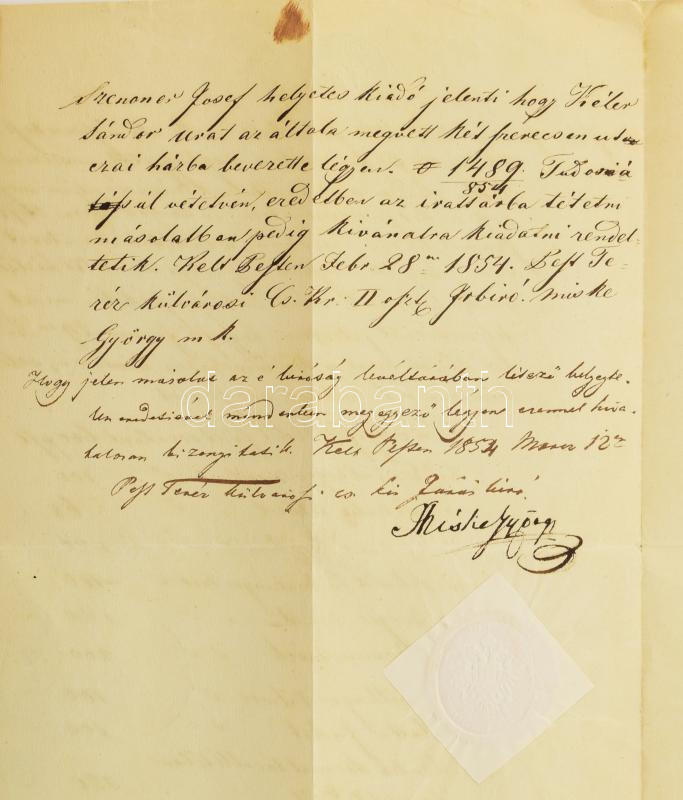 Szenoner Josef helyetes kiadó jelenti hogy Kéler
Sándor urat az általa megvett két perecsen utcz
czaiházba bevezette légyen. 1489. Tudomá
854
sál vétetvén, eredetben az irattárba tétetni
másolatban pedig kivánatra kiadatni rendel-
tetik. Kelt Pesten Febr. 28án 1854. Pest Te-
réz külvárosi Cs. Kr. II oszt. Jrbiró. miske
György m k.
Hogy jelen másolat az é biróság levéltárában létező bélyegte-
len eredetiével mindenben megegyező légyen ezennel hiva-
talosan bizonyittatik. Kelt Pesten 1854 Marcz 12én
Pest Teréz külvárosi cs. kir Járásbiró.
Miske György
darabanth